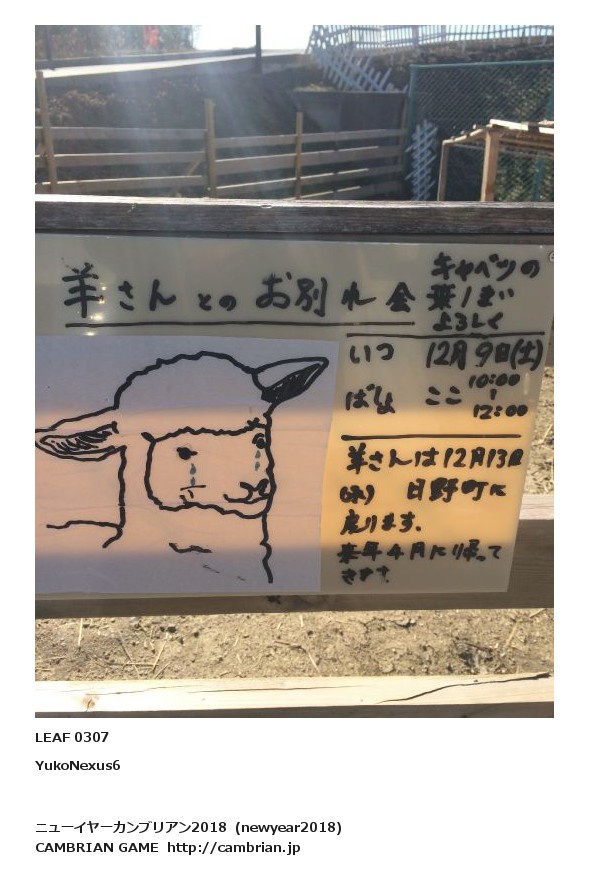 羊さんとのお別れ会
キャベツの
葉1まい
よろしく
いつ 12月9日(土)
10:00
12:00
ばしょ ここ
羊さんは12月13日
(水) 日野町に
戻ります。
来年4月に帰って
きます。
LEAF 0307
YukoNexus6
ニューイヤーカンブリアン2018 (newyear2018)
CAMBRIAN GAME http://cambrian.jp